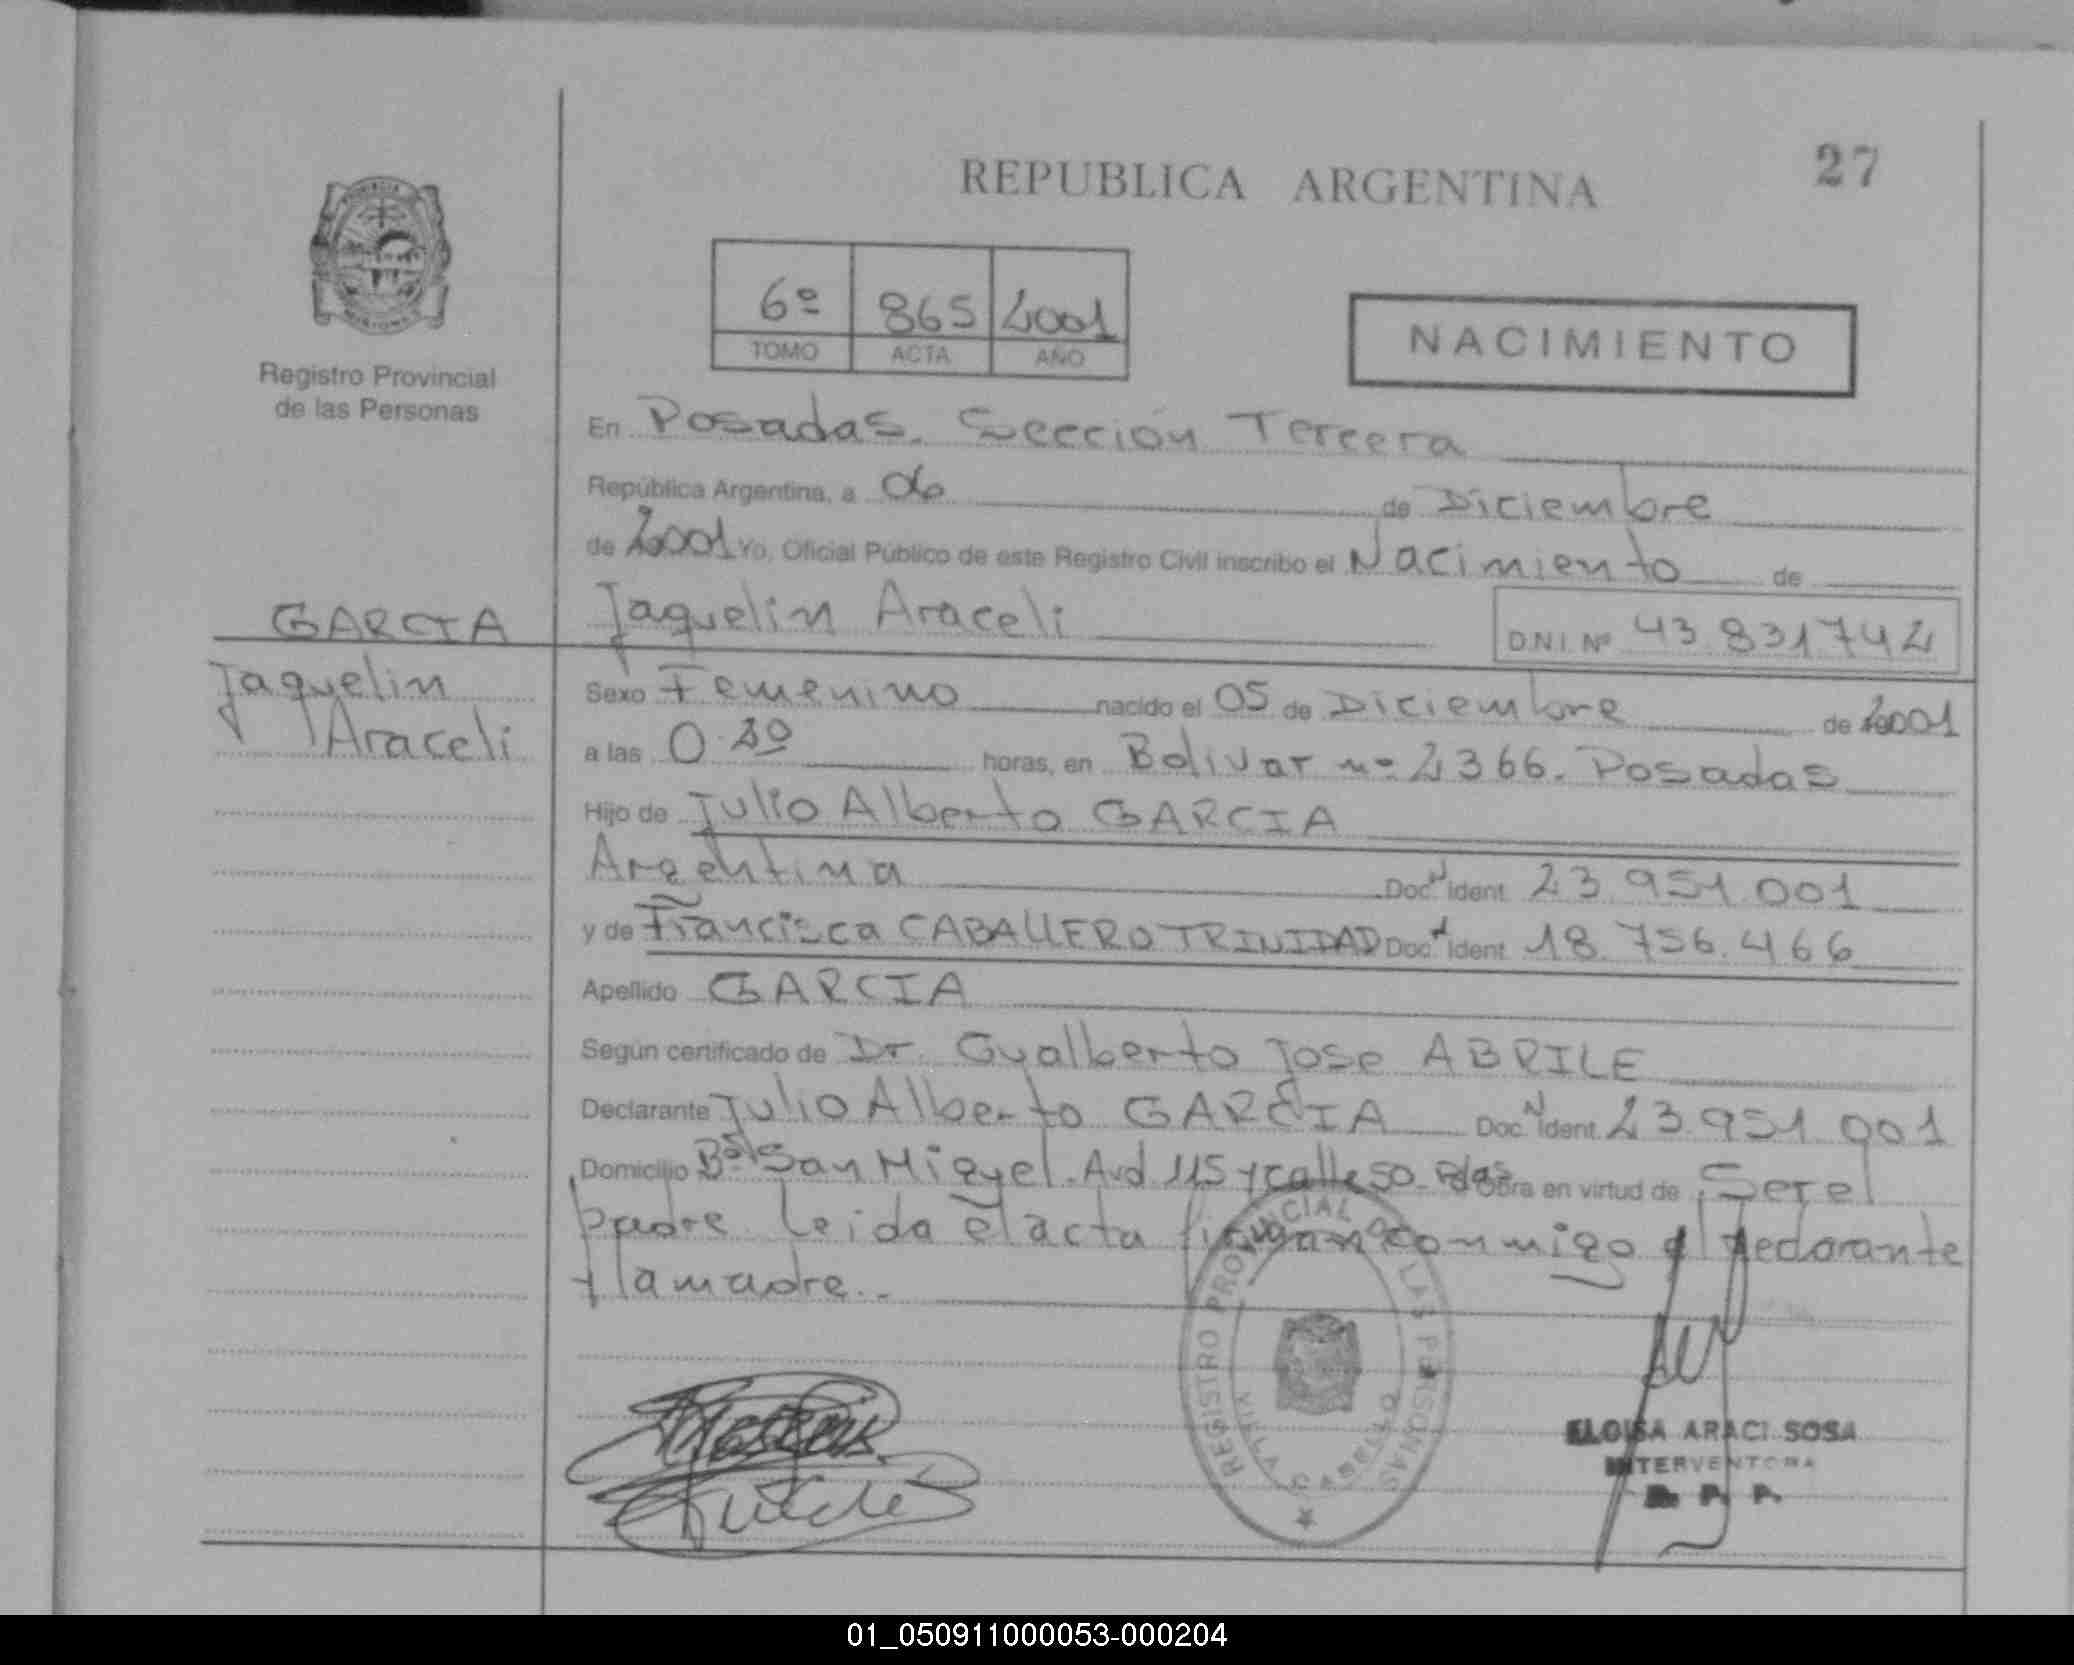 REPUBLICA ARGENTINA
27
6º 865 2001
TOMO ACTA AÑO
NACIMIENTO
Registro Provincial
de las Personas
En Posadas. Sección Tercera
República Argentina, a 06 de Diciembre
de 2001 Yo, Oficial Público de este Registro Civil inscribo el Nacimiento de
GARCIA
Jaquelin Araceli
Jaquelin Araceli
D.N.I. Nº 43.831742
Sexo Femenino nacido el 05 de Diciembre de 2001
a las 0.30 horas, en Bolivar nº 2366. Posadas
Hijo de Julio Alberto GARCIA
Argentina Doc. N ident. 23.951.001
y de Francisca CABALLERO TRINIDAD Doc. ident. 18.756.466
Apellido GARCIA
Según certificado de Dr. Gualberto Jose ABRILE
Declarante Julio Alberto GARCIA Doc. N ident. 23.951.001
Domicilio Bº San Miguel. Avd 115 y calle 50. Pdas Obra en virtud de Ser el
padre. Leida el acta firman conmigo el declarante
y la madre..
REGISTRO PROVINCIAL DE LAS PERSONAS
VILLA CABELLO
ELOISA ARACI SOSA
INTERVENTORA
R. P. P.
01_050911000053-000204